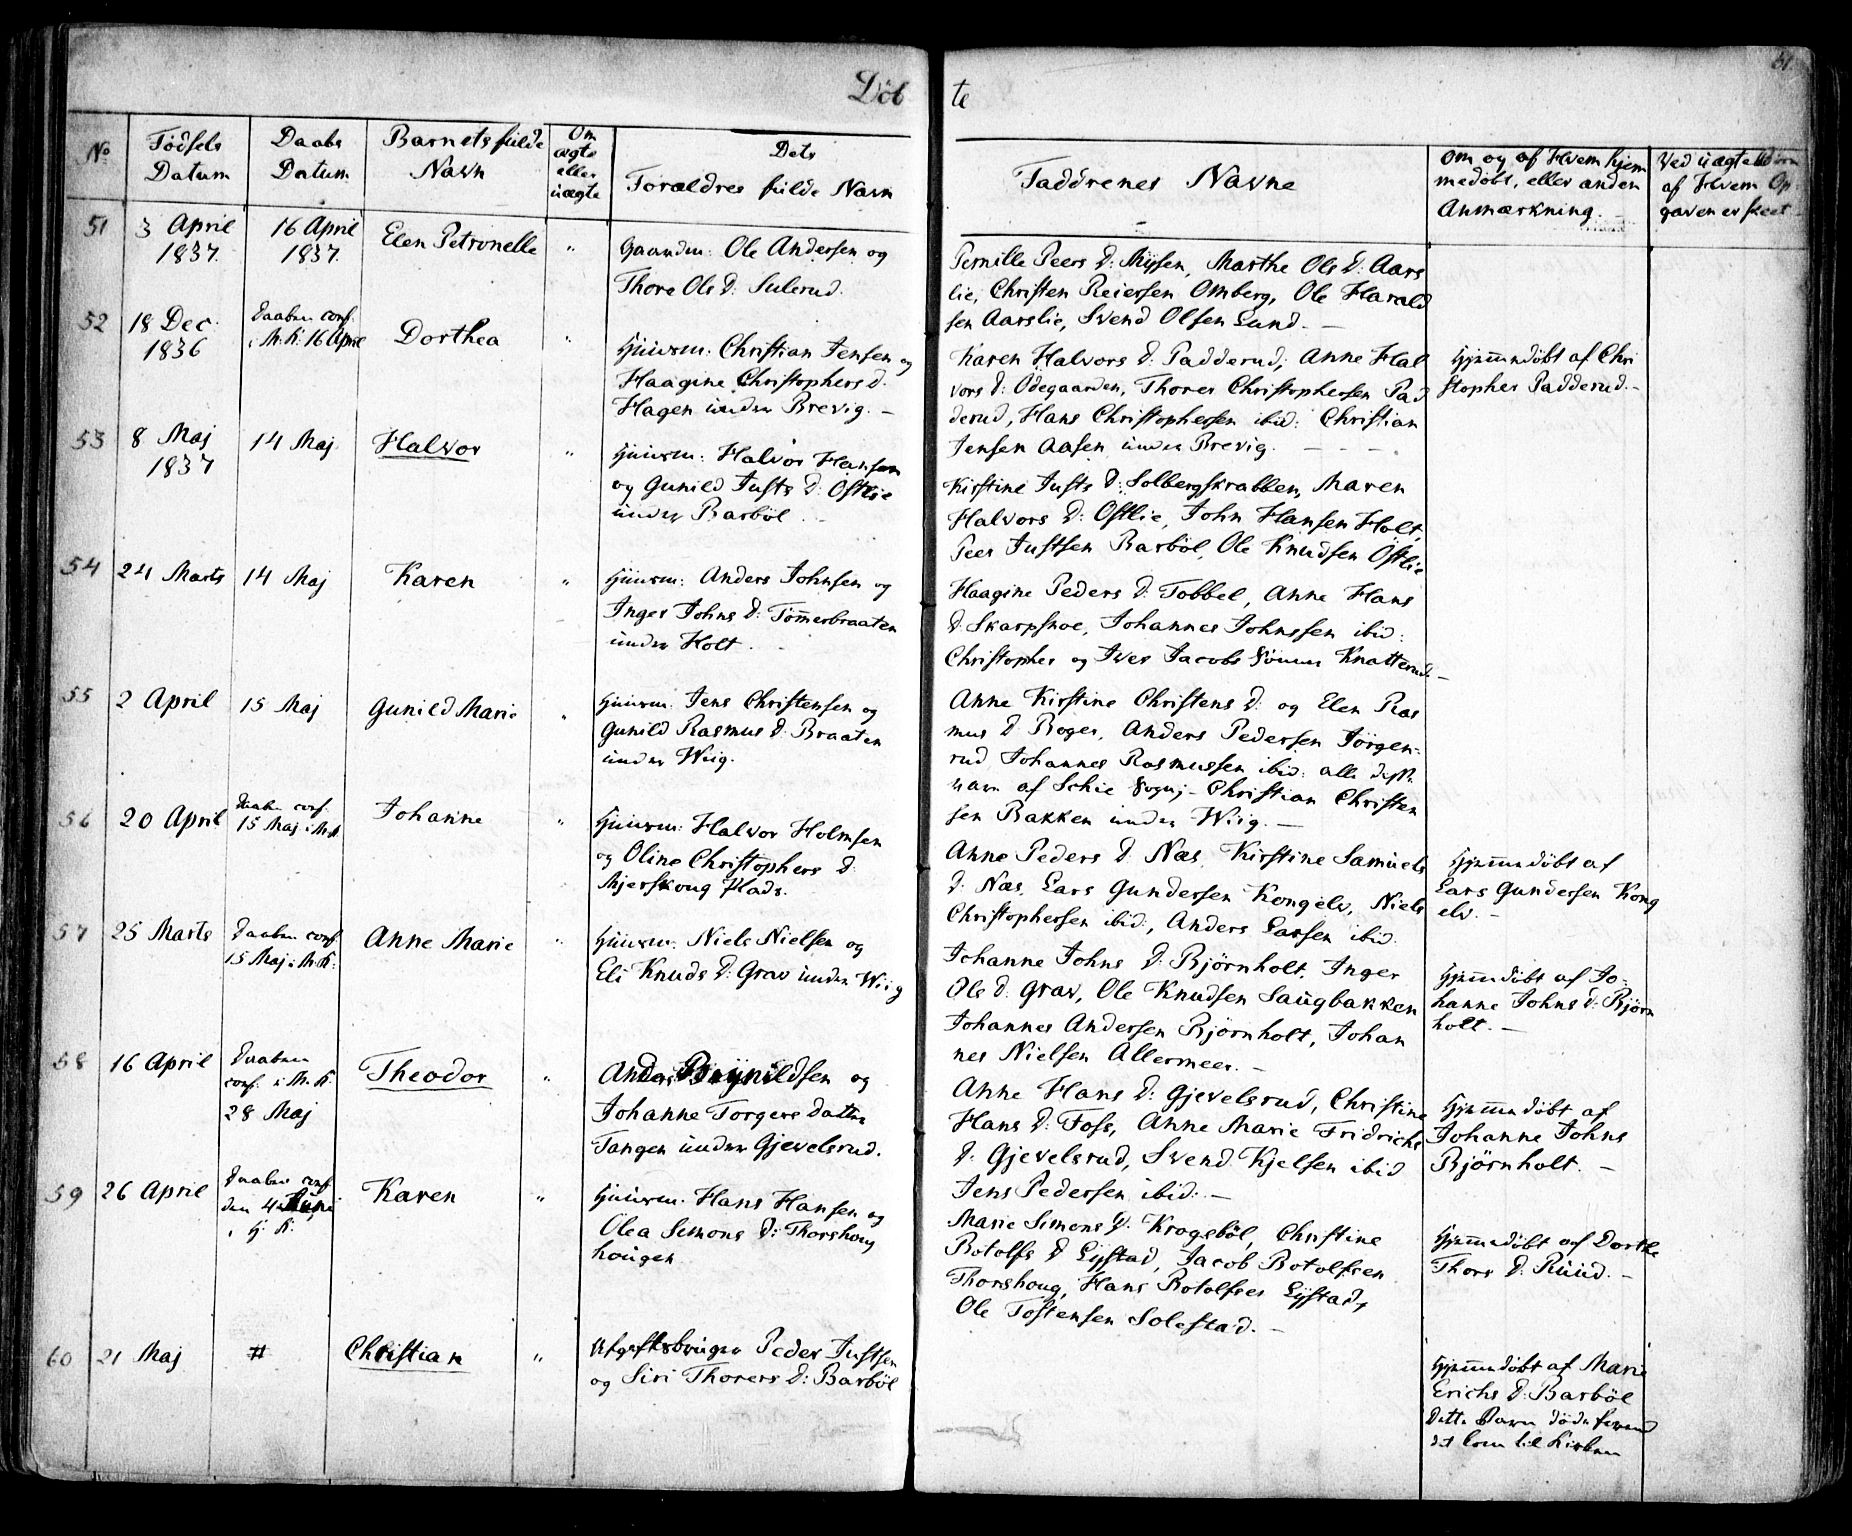 Döb te
61
No
Födsels Datum
Daabs Datum
Barnets fulde Navn
Om ægte eller uægte
Dets Forældres fulde Navn
Faddrenes Navne
Om og af Hvem hjem
medöbt, eller anden
Anmærkning.
Ved uægte Börn
af Hvem Op
gaven er skeet
51
3 April
1837.
16 April
1837.
Elen Petronelle
"
Gaardm: Ole Andersen og
Thore Ols D: Sulerud.
Pernille Peers D: Mysen, Marthe Ols D: Aars
lie, Christen Reiersen Omberg, Ole Harald
sen Aarslie, Svend Olsen Lund. —
52
18 Dec.
1836
Daaben conf.
i M. K. 16 April
Dorthea
"
Huusm: Christian Jensen og
Haagine Christophers d.
Hagen under Brevig. —
Karen Halvors D: Padderud; Anne Hal
vors d: Odegaarden, Thorer Christophersen Pad
derud, Hans Christophersen ibid: Christian
Jensen Aasen under Brevig.
Hjemmedöbt af Chri
stopher Padderud. —
53
8 Maj
1837
14 Maj
Halvor
"
Huusm: Halvor Hansen
og Gunild Justs D: Ostlie
under Barböl.
Kirstine Justs D: Solbergskrabben, Maren
Halvors D: Ostlie, John Hansen Holt,
Peer Justsen Barböl, Ole Knudsen Ostlie
54
24 Marts
14 Maj
Karen
"
Huusm: Anders Johnsen og
Inger Johns D: Tömmerbraaten
under Holt.
Haagine Peders D: Tobbel, Anne Hans
D: Skarpsnoe, Johannes Johnssen ibid:
Christopher og Iver Jacobs Sönner Knatterud. —
55
2 April
15 Maj
Gunild Marie
"
Huusm: Jens Christensen og
Gunild Rasmus D: Braaten
under Wiig.
Anne Kirstine Christens D: og Elen Ras
mus D Roger, Anders Pedersen Jörgen-
rud Johannes Rasmussen ibid: alle
af Schie Sogn; – Christian Christen
sen Bakken under Wiig. —
56
20 April
Daaben conf.
15 Maj i M.K
Johanne
"
Huusm: Halvor Holmsen
og Oline Christophers D:
Mjerskoug Plads.
Anne Peders D. Næs, Kirstine Samuels
D: Næs, Lars Gundersen Kongelv, Niels
Christophersen ibid:, Anders Larsen ibid.
Hjemmedöbt af
Lars Gundersen Kong
elv. —
57
25 Marts
Daaben conf.
15 Maj i M.K.
Anne Marie
"
Huusm: Niels Nielsen og
Eli Knuds D: Grav under Wiig
Johanne Johns D. Björnholt, Inger
Ols d. Grav, Ole Knudsen Saugbakken
Johannes Andersen Björnholt, Johan
nes Nielsen Allermeer. —
Hjemmedöbt af Jo-
hanne Johns d. Björn
holt. —
58
16 April
Daaben
conf. i M. K.
28 Maj
Theodor
"
Anders Brynildsen og
Johanne Torgers datter
Tangen under Gjevelsrud.
Anne Hans D: Gjevelsrud, Christine
Hans D: Foss, Anne Marie Fridrichs
D. Gjevelsrud, Svend Kjelsen ibid
Jens Pedersen ibid: —
Hjemmedöbt af
Johanne Johns
Björnholt. —
59
26 April
Daaben conf.
den 4 Juni
i H. K.
Karen
"
Huusm: Hans Hansen og
Olea Simons D: Thorshoug
hougen
Marie Simens D. Krogsböl, Christine
Botolfs D Lystad, Jacob Botolfsen
Thorshoug, Hans Botolfsen Lystad,
Ole Tostensen Solestad. —
Hjemmedöbt af Dorthe
Thors D. Ruud. —
60
21 Maj
#
Christian
"
Peder Justsen
og Siri Thorers D: Barböl
Hjemmedöbt af Marie
Erichs D: Barböl
Dette Barn döde forend
det kom til Kirken